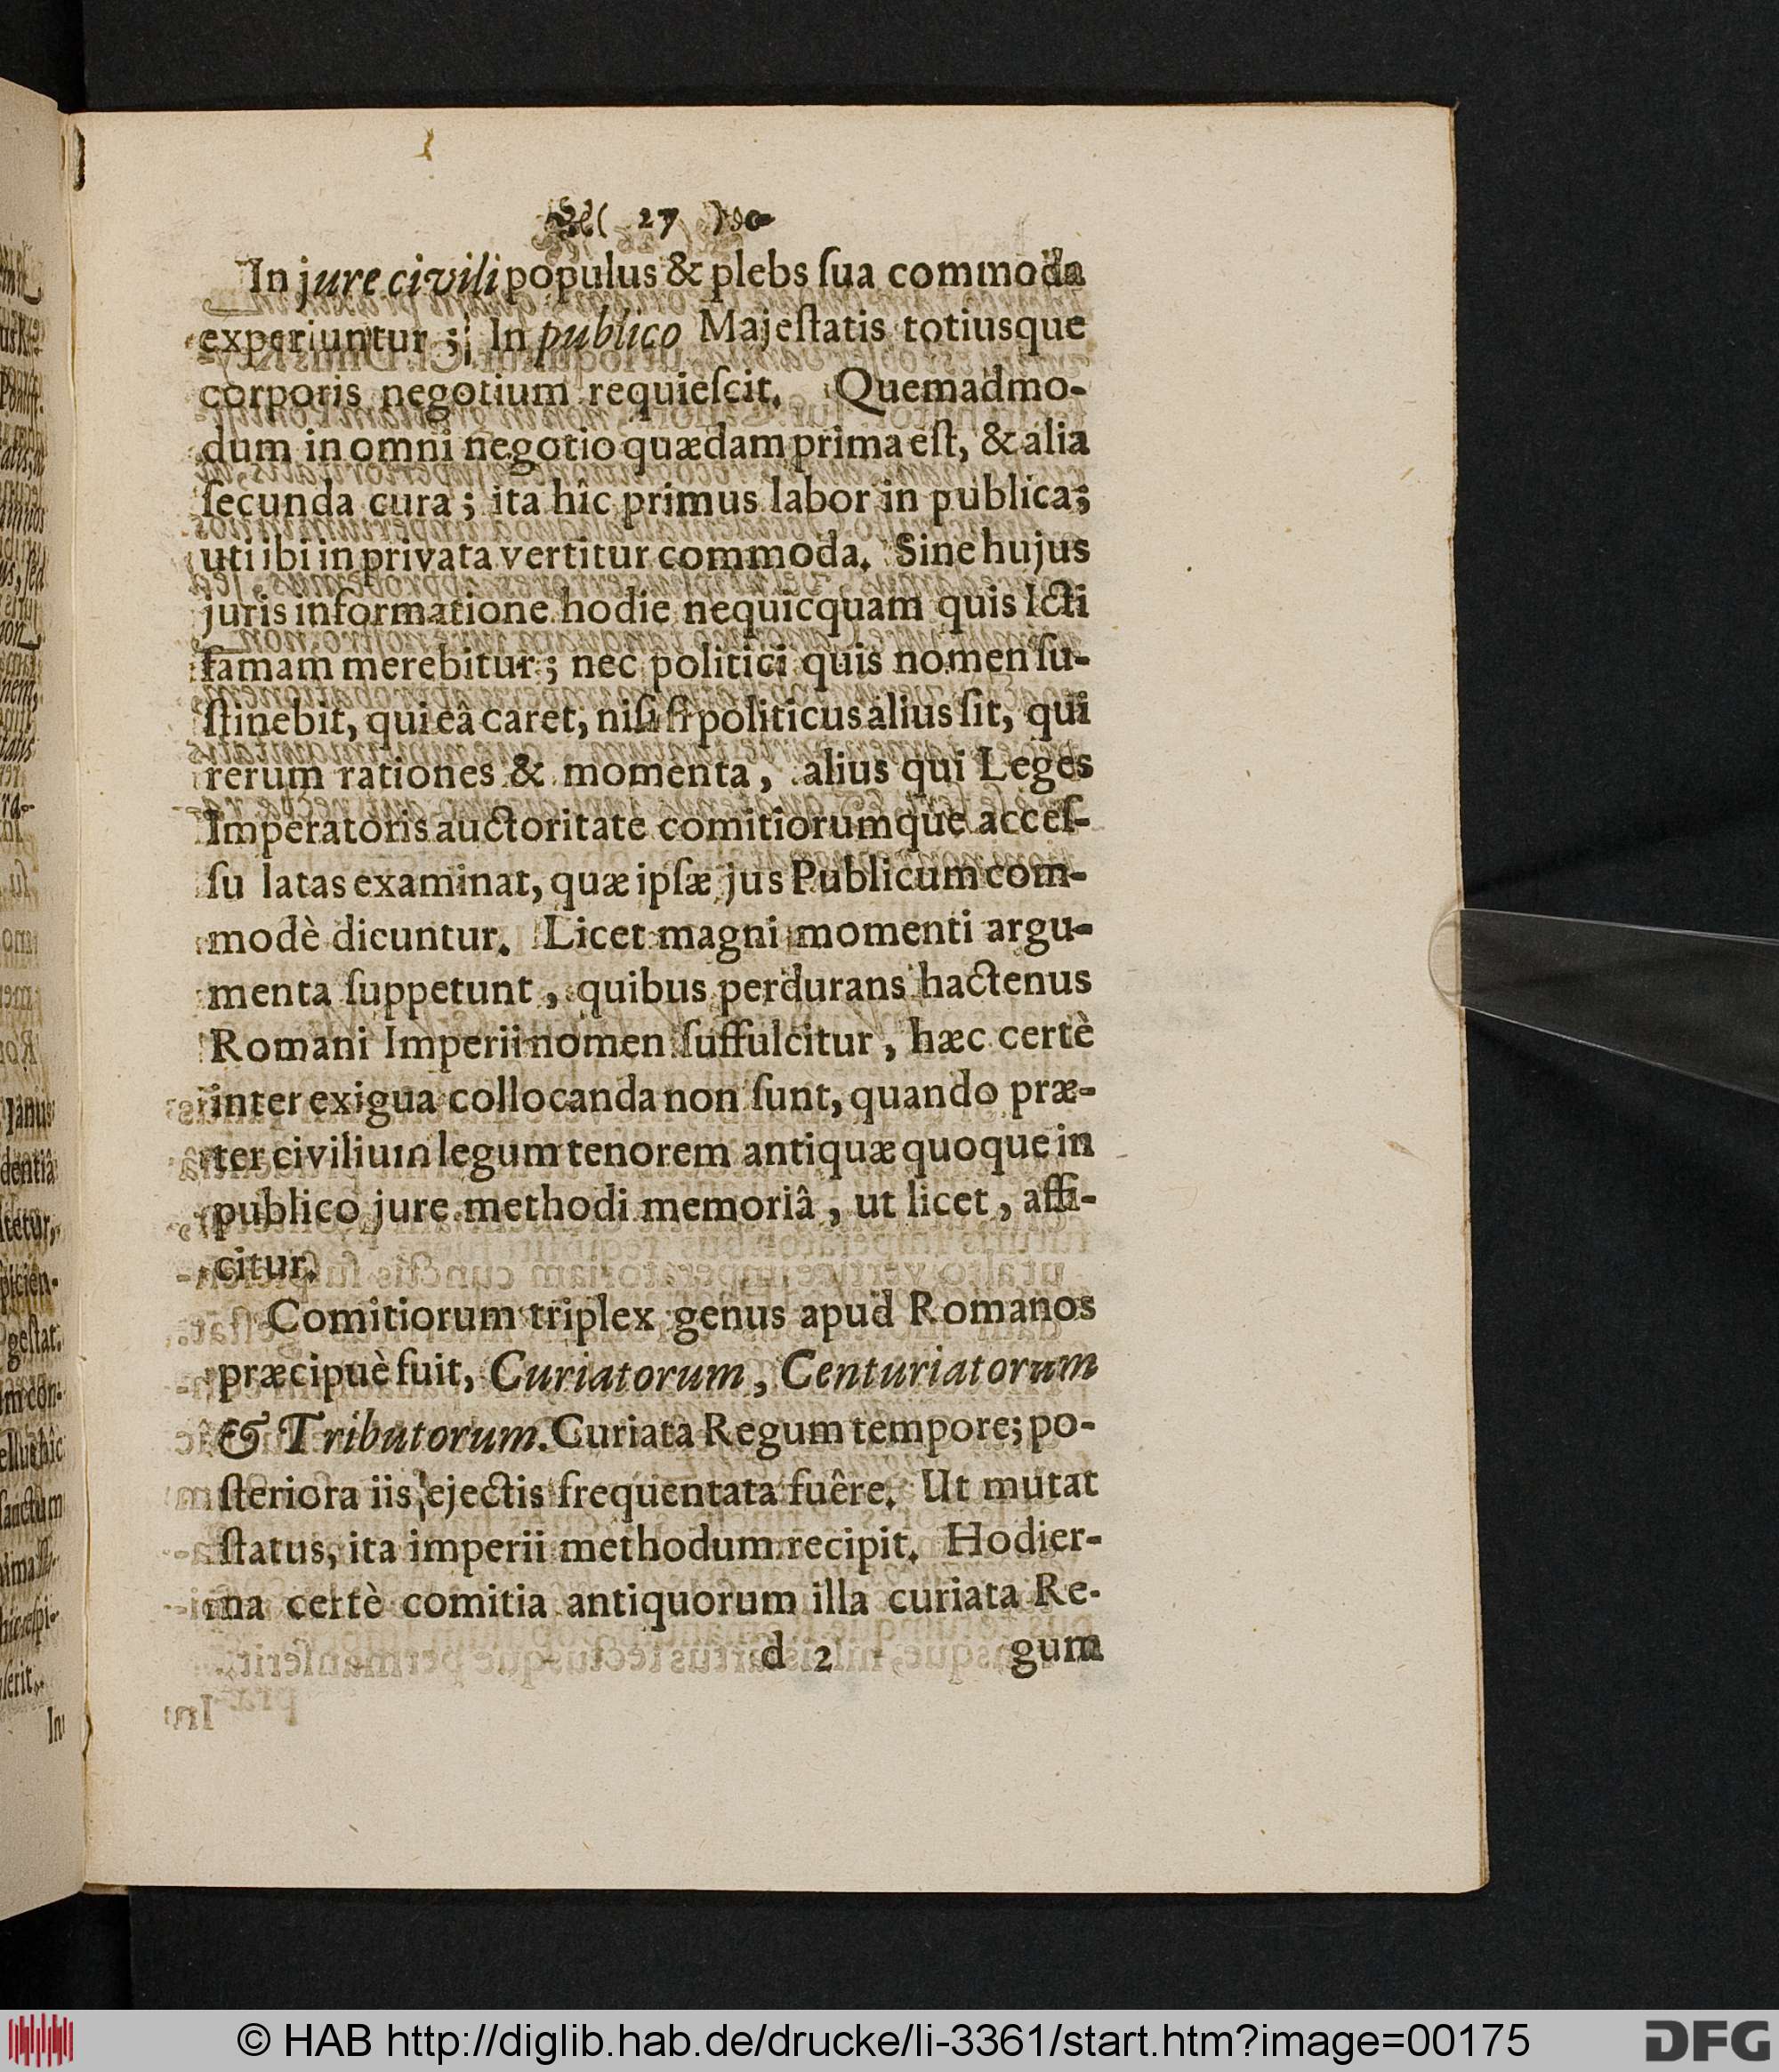 ( 27 )
In jure civili populus & plebs ſua commoda
experiuntur ; In publico Majeſtatis totiusque
corporis negotium requieſcit. Quemadmo-
dum in omni negotio quædam prima eſt, & alia
ſecunda cura ; ita hîc primus labor in publica;
uti ibi in privata vertitur commoda. Sine hujus
juris informatione hodie nequicquam quis Icti
famam merebitur ; nec politici quis nomen ſu-
ſtinebit, qui eâ caret, niſi ſi politicus alius ſit, qui
rerum rationes & momenta, alius qui Leges
Imperatoris auctoritate comitiorumque acceſ-
ſu latas examinat, quæ ipſæ jus Publicum com-
modè dicuntur. Licet magni momenti argu-
menta ſuppetunt, quibus perdurans hactenus
Romani Imperii nomen ſuffulcitur, hæc certè
inter exigua collocanda non ſunt, quando præ-
ter civilium legum tenorem antiquæ quoque in
publico jure methodi memoriâ, ut licet, affi-
citur.
Comitiorum triplex genus apud Romanos
præcipuè fuit, Curiatorum, Centuriatorum
& Tributorum. Curiata Regum tempore; po-
ſteriora iis ejectis frequentata fuêre. Ut mutat
ſtatus, ita imperii methodum recipit. Hodier-
na certè comitia antiquorum illa curiata Re-
d 2 gum
© HAB http://diglib.hab.de/drucke/li-3361/start.htm?image=00175
DFG